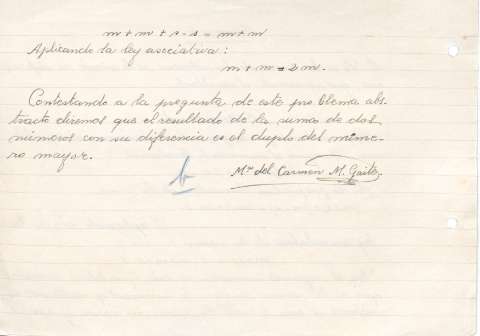 m + m + s - s = m + m
Aplicando la ley asociativa:
m + m = 2 m.
Contestando a la pregunta de este problema abs-
tracto diremos que el resultado de la suma de dos
números con su diferencia es el duplo del núme-
ro mayor.
b
Mª del Carmen M. Gaite